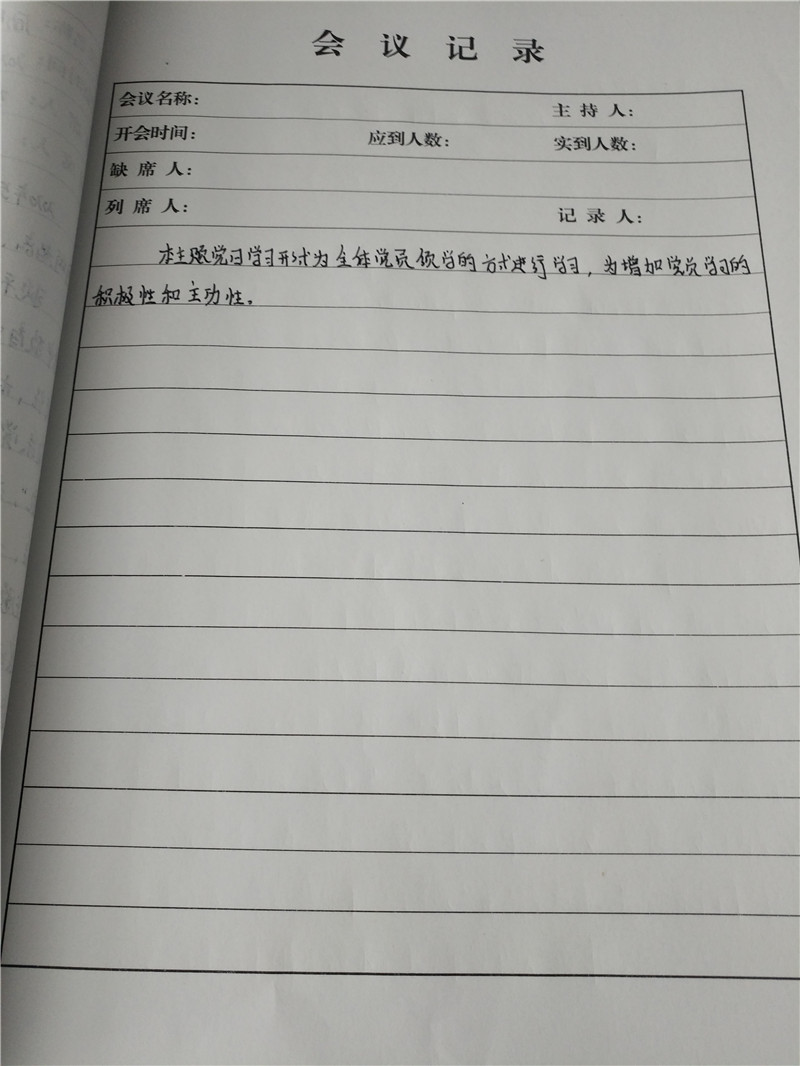 会议记录
会议名称: 主持人:
开会时间: 应到人数: 实到人数:
缺席人:
列席人: 记录人:
本主题党日学习形式为全体党员领学的方式进行学习，为增加党员学习的
积极性和主功性。